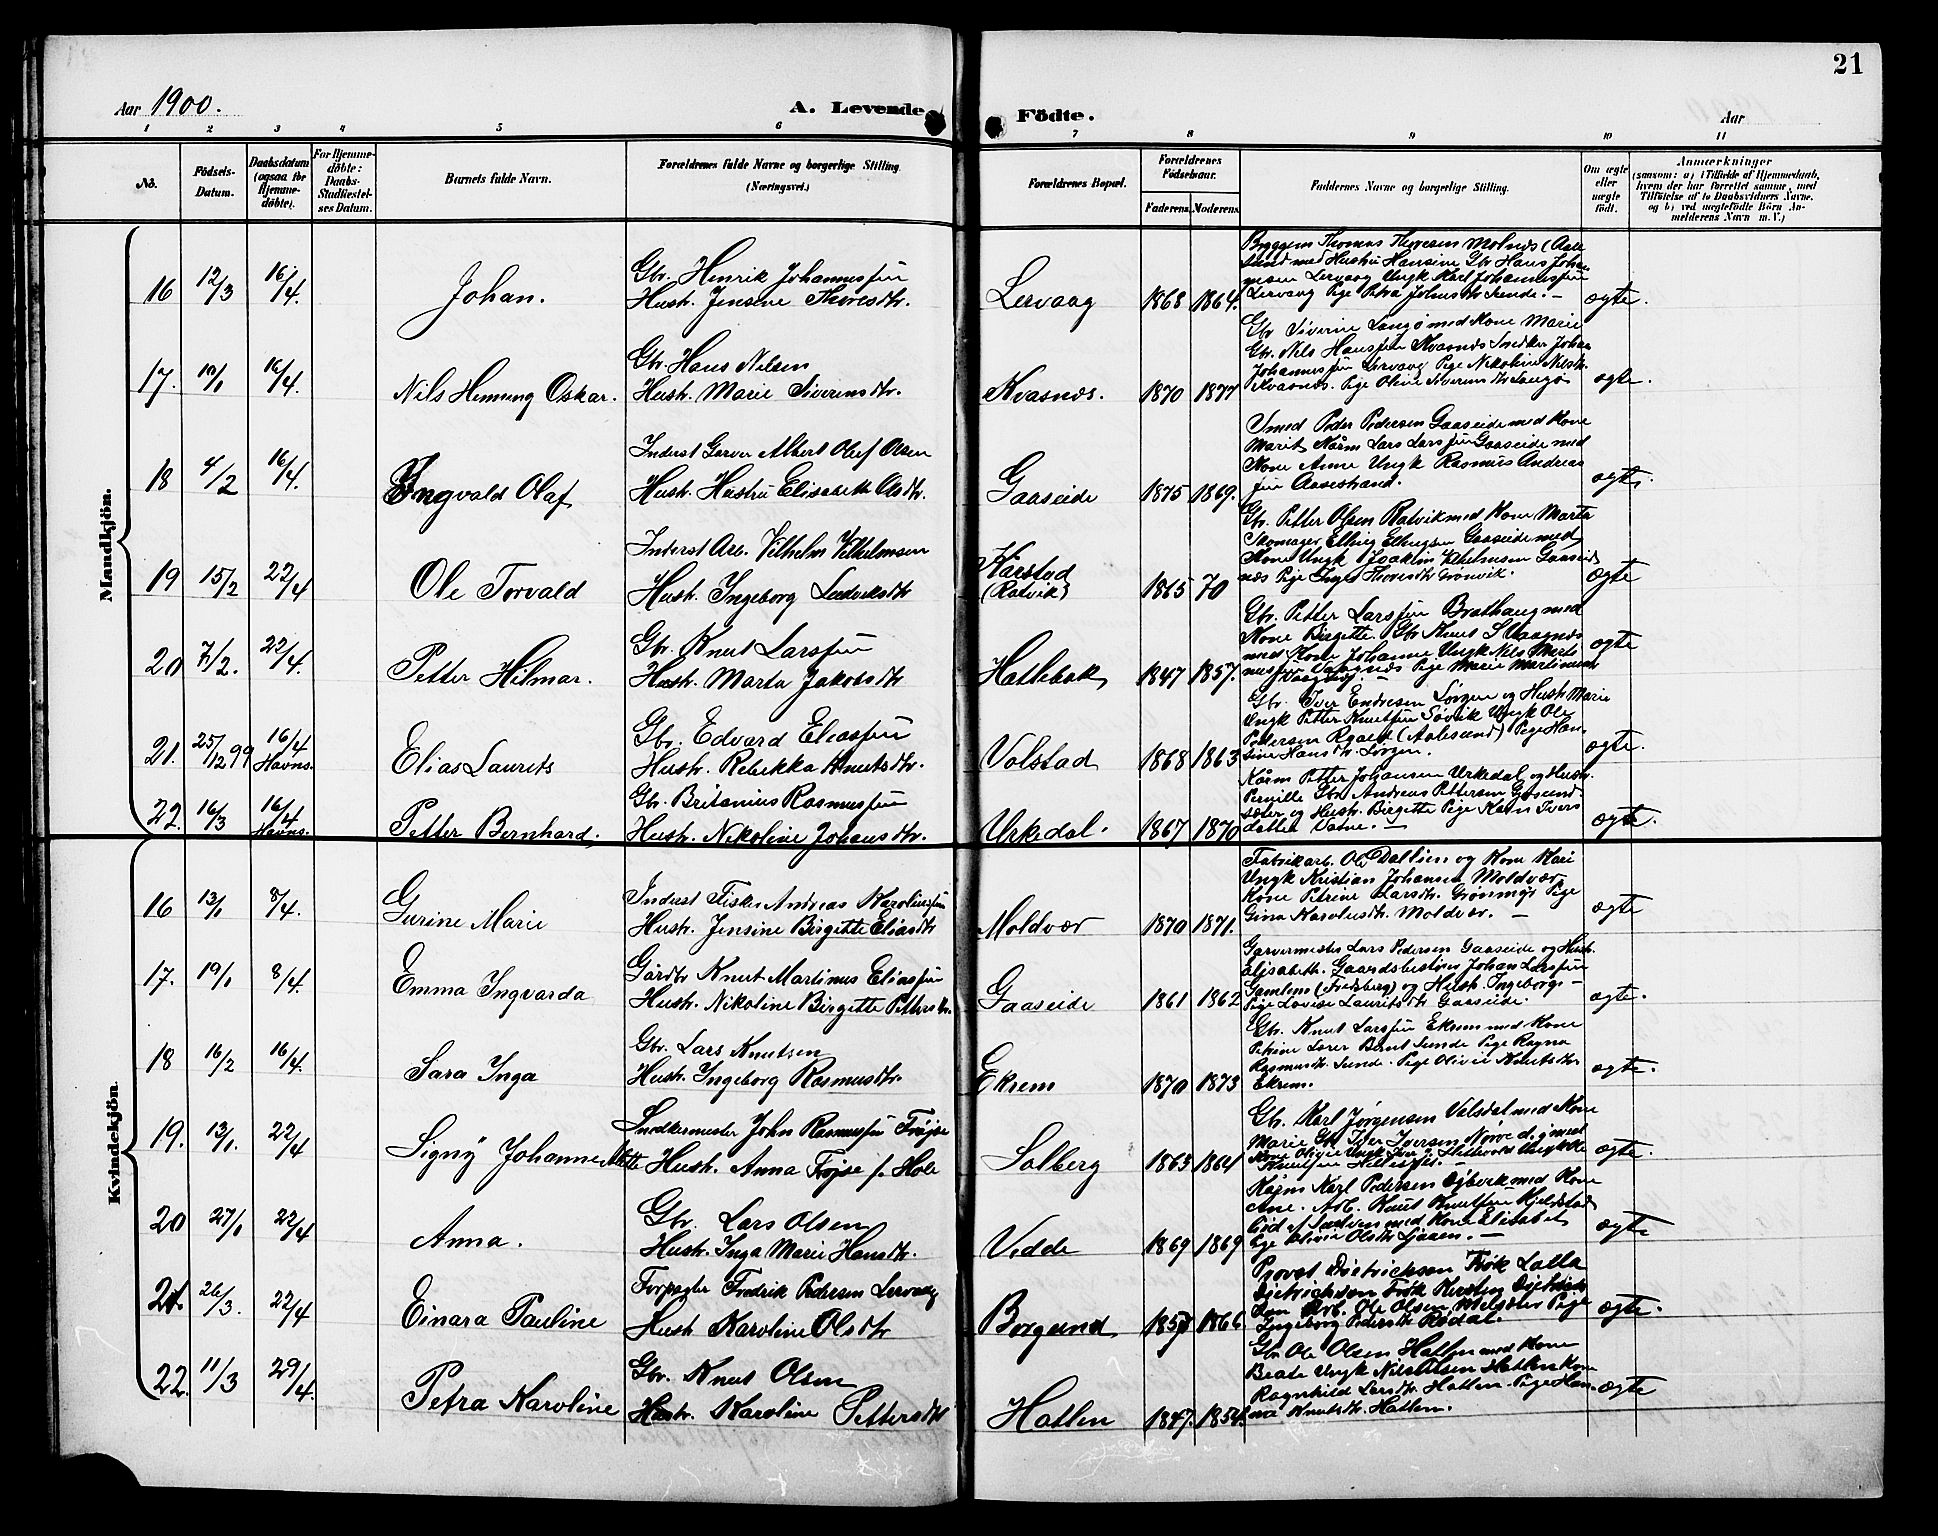 21
Aar 1900.
A. Levende Födte.
Aar
1 2 3 4 5 6 7 8 9 10 11
No.
Födsels-Datum.
Daabsdatum (ogsaa for Hjemme-döbte).
For Hjemme-döbte: Daabs-Stadfæstel-ses Datum.
Barnets fulde Navn.
Forældrenes fulde Navne og borgerlige Stilling. (Næringsvei.)
Forældrenes Bopæl.
Forældrenes Födselsaar.
Faderens. Moderens.
Faddernes Navne og borgerlige Stilling.
Om ægte eller uægte födt.
Anmærkninger
(saasom: a) i Tilfælde af Hjemmedaab, hvem der har forrettet samme, med Tilföielse af to Daabsvidners Navne, og b) ved uægtefödte Börn An-melderens Navn m. V.)
Mandkjön.
16 12/3 16/4. Johan. Gbr. Henrik Johannessen
Hustr. Jensine Thoresdtr. Lervaag 1868 1864. ægte.
Lervaag Pige Petra Johnsdtr Sunde. —
17. 10/1 16/4. Nils Henning Oskar. Gbr. Hans Nilsen
Hustr. Marie Siverinsdtr. Kvasnæs. 1870 1877 ægte.
Gbr. Siverin Langø med Kone Marie
Gbr. Nils Hanssen Kvasnæs Snedker Johan
Johannessen Lervaag Pige Nikoline Nilsdtr.
Kvasnæs. Pige Oline Siverinsdtr Langø
18 4/2 16/4. Ingvald Olaf Inderst Garver Albert Oluf Olsen
Hustr. Hustru Elisabeth Olsdtr. Gaaseide 1875 1869. ægte.
Smed Peder Pedersen Gaaseide med Kone
Marit Kårm Lars Larssen Gaaseide med
Kone Anne Ungk Rasmus Andreas
sen Aasestrand.
19 15/2 22/4 Ole Torvald Inderst Arb. Vilhelm Vilhelmsen
Hustr. Ingeborg Ludviksdtr Karstad
(Ratvik) 1865 70 ægte
Gbr. Petter Olsen Ratvik med Kone Marta
Skomager Elling Ellingsen Gaaseide med
Kone Ungk Joakim Vilhelmsen Gaaseid
næs Pige Inga Thoresdtr Grønvik.
20 7/2. 22/4. Petter Hilmar. Gbr. Knut Larssen
Hustr. Marta Jakobsdtr Hatlebak 1847 1857. ægte
Gbr. Petter Larssen Brathaug med
Kone Birgitte. Gbr Knut S Vaagnæs
med Kone Johanne Ungk Nils Marti
nussen Vaagnæs Pige Marie Martinusdtr
21. 25/12 99 16/4 Havns. Elias Laurits Gbr. Edvard Eliassen
Hustr. Rebekka Knutsdtr. Volstad 1868 1863 ægte.
Gbr. Iver Endresen Sørgen og Hustr Marie
Ungk Petter Knutsen Søvik Ungk Ole
Pedersen (Aalesund) Pige Han-
sine Hansdtr Sørgen.
22. 16/3 16/4 Havns. Petter Bernhard. Gbr. Britanius Rasmussen
Hustr. Nikoline Johansdtr. Urkedal. 1867 1870 ægte.
Kårm Petter Johansen Urkedal og Hustr.
Pernille Gbr. Andreas Pettersen Grøsund-
sæter og Hustr. Birgitte Pige Karn Ivers
datter Vatne. —
Kvindekjön
16 13/1 8/4. Gurine Marie Inderst Fisker Andreas Karolussen
Hustr. Jensine Birgitte Eliasdtr Moldvær 1870 1871. ægte
Fabrikarb. Ole Dallien og Kone Kari
Ungk Kristian Johansen Moldvær
Kone Petrine Larsdtr. Grønmyr Pige
Gina Karolusdtr. Moldvær. —
17. 19/1 8/4. Emma Ingvarda Gårdbr Knut Martinus Eliassen
Hustr. Nikoline Birgitte Pettersdtr. Gaaseide 1861 1862 ægte.
Garvermester Lars Pedersen Gaaseide og Hustr.
Elisabeth. Gaardsbestyrer Johan Larssen
Gamlem (Fredsberg) og Hustr. Ingeborg. —
Pige Lovise Lauritsdtr Gaaseide.
18 16/2 16/4. Sara Inga Gbr. Lars Knutsen
Hustr. Ingeborg Rasmusdtr. Ekrem 1870 1873 ægte.
Gbr. Knut Larssen Ekrem med Kone
Petrine Lærer Bernt Sunde Pige Ragna
Rasmusdtr Sunde. Pige Olivie Knutsdtr
Ekrem.
19. 13/1. 22/4 Signy Johanne Mette Snedkermester John Rasmussen Frøjse
Hustr. Anna Frøjse f. Hole Solberg 1863 1864 ægte.
Gbr. Karl Jørgensen Valsdal med Kone
Marie Gbr. Iver Iversen Nørve d. y. med
20 27/1 22/4 Anna. Gbr. Lars Olsen
Hustr. Inga Marie Hansdtr. Vedde 1869 1869 ægte
Karl Pedersen med Kone
Ane. Arb. Knut Knutsen Kjelstad
med Kone Elisabet
Pige Olivie Olsdtr. —
21. 26/3. 22/4 Einara Pauline Forpagter Fredrik Pedersen Lervaag
Hustr Karoline Olsdtr Borgund 1866 ægte.
Provst Dietrichsen Frøk Lalla
Dietrichson Frøk Kirsten Dietrich
son Arb. Ole Olsen Pige
Ingeborg Pedersdtr
22. 11/3 29/4. Petra Karoline Gbr. Knut Olsen
Hustr. Karoline Pettersdtr Hatlen 1847. 1854. ægte
Gbr Ole Olsen Hatlen med Kone
Beate Ungk Nils Olsen Hatlen Kone
Ragnhild Larsdtr. Hatlen. Pige Han-
na Knutsdtr. Hatlen.